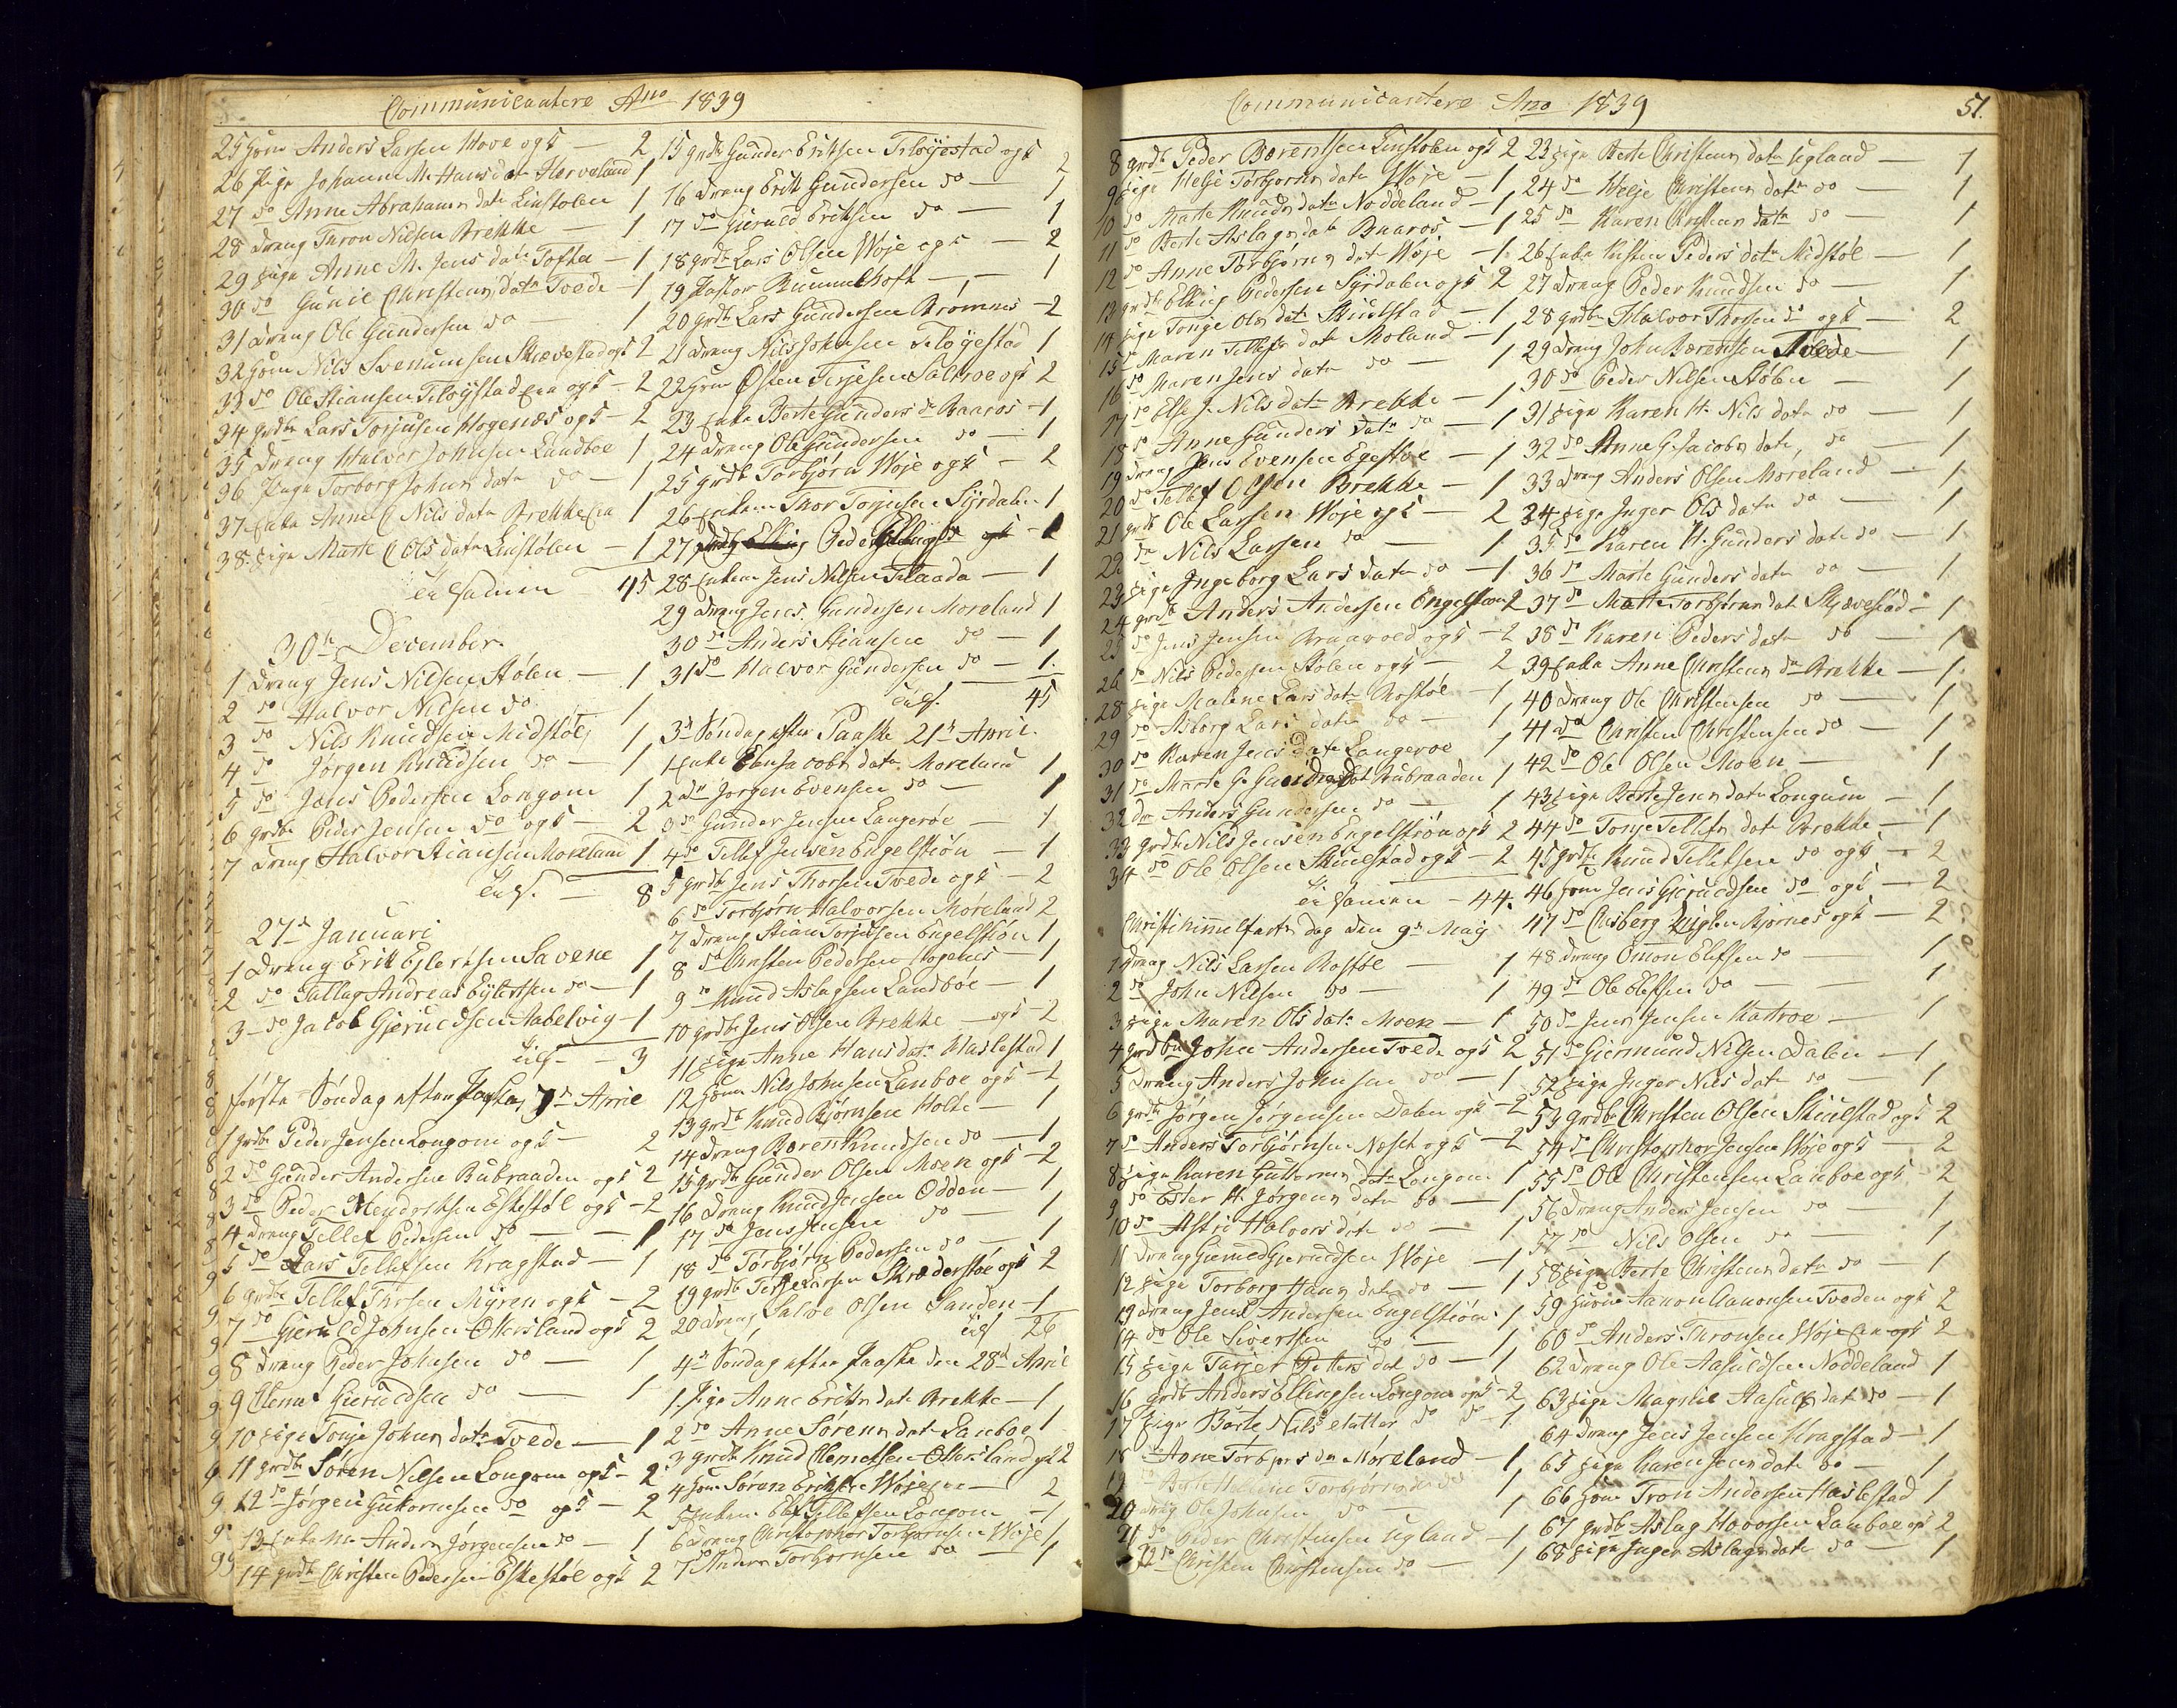 Communicantere Ano 1839
25 Huusm Anders Larsen Hove og k — 2
26 Pige Johanne M. Hansdatr Herveland 1
27 do Anne Abrahams datr Linstølen 1
28 Dreng Thron Nilsen Brekke — 1
29 Pige Anne M. Jens datr Tofta — 1
30 do Gunil Christens datr Tvede — 1
31 Dreng Ole Gundersen do — 1
32 Huusm Nils Svenumsen Skievestad og k 2
33 do Ole Stiansen Tiløystad og k — 2
34 grdbr Lars Torjusen Hogenæs og k — 2
35 Dreng Halvor Johnsen Landboe 1
36 Pige Torborg Johns datr do — 1
37 Enke Anne C Nils datr Brekke 1
38 Pige Marte C Ols datr Linstølen — 1
Tilsamen 45
30te December
1 Dreng Jens Nilsen Stølen — 1
2 do Halvor Nilsen do — 1
3 do Nils Knudsen Midstøl 1
4 do Jørgen Knudsen do — 1
5 do Jens Pedersen Longom 1
6 grdbr Peder Jensen do og k — 2
7 Dreng Halvor Stiansen Moreland 1
Tils. — 8
27de Januari
1 Dreng Erik Ejlertsen Savene 1
2 do Tallag Andreas Eylertsen do — 1
3 do Jacob Gjeruldsen Nabelvig — 1
Tils — 3
første Søndag efter Paaske 7de April
1 grdbr Peder Jensen Longom og k — 2
2 do Gunder Andersen Rubraaden og k 2
3 do Peder Heydriksen Eskestøl og k — 2
4 Dreng Tellef Pedersen do — 1
5 do Lars Tellefsen Kragstad — 1
6 grdbr Tellef Thorsen Myren og k — 2
7 do Gjeruld Johnsen Ottersland og k 2
8 Dreng Peder Johnsen do — 1
9 Clemet Gieruldsen do — 1
10 Pige Tonje Johns datr Tvede — 1
11 grdbr Søren Nilsen Longom og k — 2
12 do Jørgen Guttormsen do og k — 2
13 Enkem Anders Jørgensen do — 1
14 grdbr Christen Pedersen Eskestøl og k 2
15 grdbr Gunder Eriksen Tiløyestad og k 2
16 Dreng Erik Gundersen do — 1
17 do Gieruld Eriksen do — 1
18 grdbr Lars Olsen Woje og k — 2
19 Pastor Rummelhoff — 1
20 grdbr Lars Gundersen Brømnes — 2
21 Dreng Nils Johnsen Tiløyestad 1
22 Huusm Osten Terjesen Saltroe og k 2
23 Enke Berte Gunders dr Baaros — 1
24 Dreng Ole Gundersen do — 1
25 grdbr Torbjørn Woje og k — 2
26 Enkem Thor Torjusen Syrdalen 1
27 Peder — 1
28 Enkem Jens Nilsen Tilaada — 1
29 Dreng Jens Gundersen Moreland 1
30 do Anders Stiansen do — 1
31 do Halvor Gundersen do — 1
Tils. 45
3de Søndag efter Paaske 21de April
1 Enke Ellen Jacobs datr Moreland 1
2 dr Jørgen Evensen do — 1
3 do Gunder Jensen Langeroe — 1
4 do Tellef Jensen Engelstiøn — 1
5 grdbr Jens Thorsen Tvede og k — 2
6 do Torbjørn Halvorsen Moreland 2
7 Dreng Stian Torjusen Engelstiøn 1
8 do Christen Pedersen Hogenes — 1
9 do Knud Aslagsen Landbøe — 1
10 grdbr Jens Olsen Brekke — og k — 2
11 Pige Anne Hans datr Haslestad 1
12 Huusm Nils Johnsen Lanboe og k — 2
13 grdbr Knud Bjørnsen Holte — 1
14 Dreng Bæren Knudsen do — 1
15 grdbr Gunder Olsen Moen og k — 2
16 Dreng Knud Jensen Odden — 1
17 do Jens Jensen do — 1
18 do Torbjørn Pedersen do — 1
19 grdbr Terje Larsen Skrederstøe og k 2
20 Dreng Salve Olsen Sanden — 1
Tils 26
4de Søndag efter Paaske den 28de April
1 Pige Anne Eriks datr Brekke — 1
2 do Anne Sørens datr Lanboe 1
3 grdbr Knud Clemetsen Ottersland og k 2
4 Huusm Søren Eriksen Woje — 2
5 Enkem Elef Tellefsen Longom — 1
6 Dreng Christopher Torbjørnsen Woje 1
7 do Anders Torbjornsen do — 1
Communicantere Ano 1839
51.
8 grdbr Peder Bærentsen Linstølen og k 2
9 Pige Helje Torbjørns datr Woje — 1
10 do Marte Knuds datr Noddeland — 1
11 do Berte Aslags datr Baaros — 1
12 do Anne Torbjørns datr Woje — 1
13 grdbr Elling Pedersen Syrdalen og k 2
14 Pige Tonje Ols datr Skuelstad — 1
15 do Maren Tellefs datr Moland — 1
16 do Maren Jens datr do — 1
17 do Else J. Nils datr Brekke — 1
18 do Anne Gunders datr do — 1
19 Dreng Jens Evensen Egestøe — 1
20 do Tellef Olsen Brekke — 1
21 grdbr Ole Larsen Woje og k — 2
22 dr Nils Larsen do — 1
23 Pige Ingeborg Lars datr do — 1
24 grdbr Anders Andersen Engelstiøn 2
25 do Jens Jensen Braavold og k — 2
26 do Nils Pedersen Stølen og k — 2
28 Pige Malene Lars datr Rostøl — 1
29 do Asborg Lars datr do — 1
30 do Karen Jens datr Langeroe 1
31 do Marte G. Gunders datr Rubraaden 1
32 dr Anders Gundersen do — 1
33 grdbr Nils Jensen Engelstiøn og k 2
34 do Ole Olsen Skuelstad og k — 2
Tilsamen — 44
Christi himmelfarts dag den 9de Maij
1 Dreng Nils Larsen Rostøe — 1
2 do John Nilsen do — 1
3 Pige Maren Ols datr Moen — 1
4 grdbr John Andersen Tvede og k 2
5 Dreng Anders Johnsen do — 1
6 grdbr Jørgen Jørgensen Dalen og k — 2
7 do Anders Torbjørnsen Næset og k — 2
8 Pige Karen Guttorms datr Longom 1
9 do Ester H. Jørgens datr do — 1
10 do Astri Halvors datr do — 1
11 Dreng Gieruld Gieruldsen Woje — 1
12 Pige Torborg Hans datr do — 1
13 Dreng Jens Andersen Engelstiøn 1
14 do Ole Sivertsen do — 1
15 Pige Tarjer Petters dat do — 1
16 grdbr Anders Ellingsen Longom og k — 2
17 Pige Børte Nilsdatter do — 1
18 do Anne Torbjørns dr Moreland — 1
19 do Berte Helene Torbjørns dr do 1
20 Dreng Ole Johnsen do — 1
21 do Peder Christensen Ugland — 1
22 do Christen Christensen do — 1
23 Pige Berte Christens datr Ugland — 1
24 do Helje Christens datr do — 1
25 do Karen Christens datr do — 1
26 Enke Kirsten Peders datr Midstøl — 1
27 Dreng Peder Knudsen do — 1
28 grdbr Halvor Thorsen do og k — 2
29 Dreng John Bærentsen Tvede — 1
30 do Peder Nilsen Stølen — 1
31 Pige Karen H. Nils datr do — 1
32 do Anne G. Jacobs datr do — 1
33 Dreng Anders Olsen Moreland — 1
34 Pige Inger Ols datr do — 1
35 do Karen H. Gunders datr do — 1
36 do Marte Gunders datr do — 1
37 do Marte Torbjørns dat Skjævestad — 1
38 do Karen Peders datr do — 1
39 Enke Anne Christens dr Brekke — 1
40 Dreng Ole Christensen do — 1
41 do Christen Christensen do — 1
42 do Ole Olsen Moen — 1
43 Pige Berte Jens datr Longum — 1
44 do Tonje Tellefs datr Brekke — 1
45 grdbr Knud Tellefsen do og k — 2
46 Huusm Jens Gjeruldsen do og k — 2
47 do Bjørnes og k — 2
48 Dreng Omon Elefsen do — 1
49 do Ole Elefsen do — 1
50 do Jens Jensen Kattroe — 1
51 do Giermund Nilsen Dalen — 1
52 Pige Inger Nils datr do — 1
53 grdbr Christen Olsen Skuelstad og k 2
54 do Christopher Jensen Woje og k 2
55 do Ole Christensen Lanboe og k — 2
56 Dreng Anders Jensen do — 1
57 do Nils Olsen do — 1
58 Pige Berte Christens datr do — 1
59 Huusm Aanon Aanonsen Tveden og k 2
60 do Anders Thronsen Woje og k 2
62 Dreng Ole Aasuldsen Noddeland 1
63 Pige Magnil Aasulds datr do — 1
64 Dreng Jens Jensen Kragstad — 1
65 Pige Karen Jens datr do — 1
66 Huusm Tron Andersen Haslestad 1
67 grdbr Aslag Hovorsen Lanboe og k 2
68 Pige Inger Aslags datr do — 1